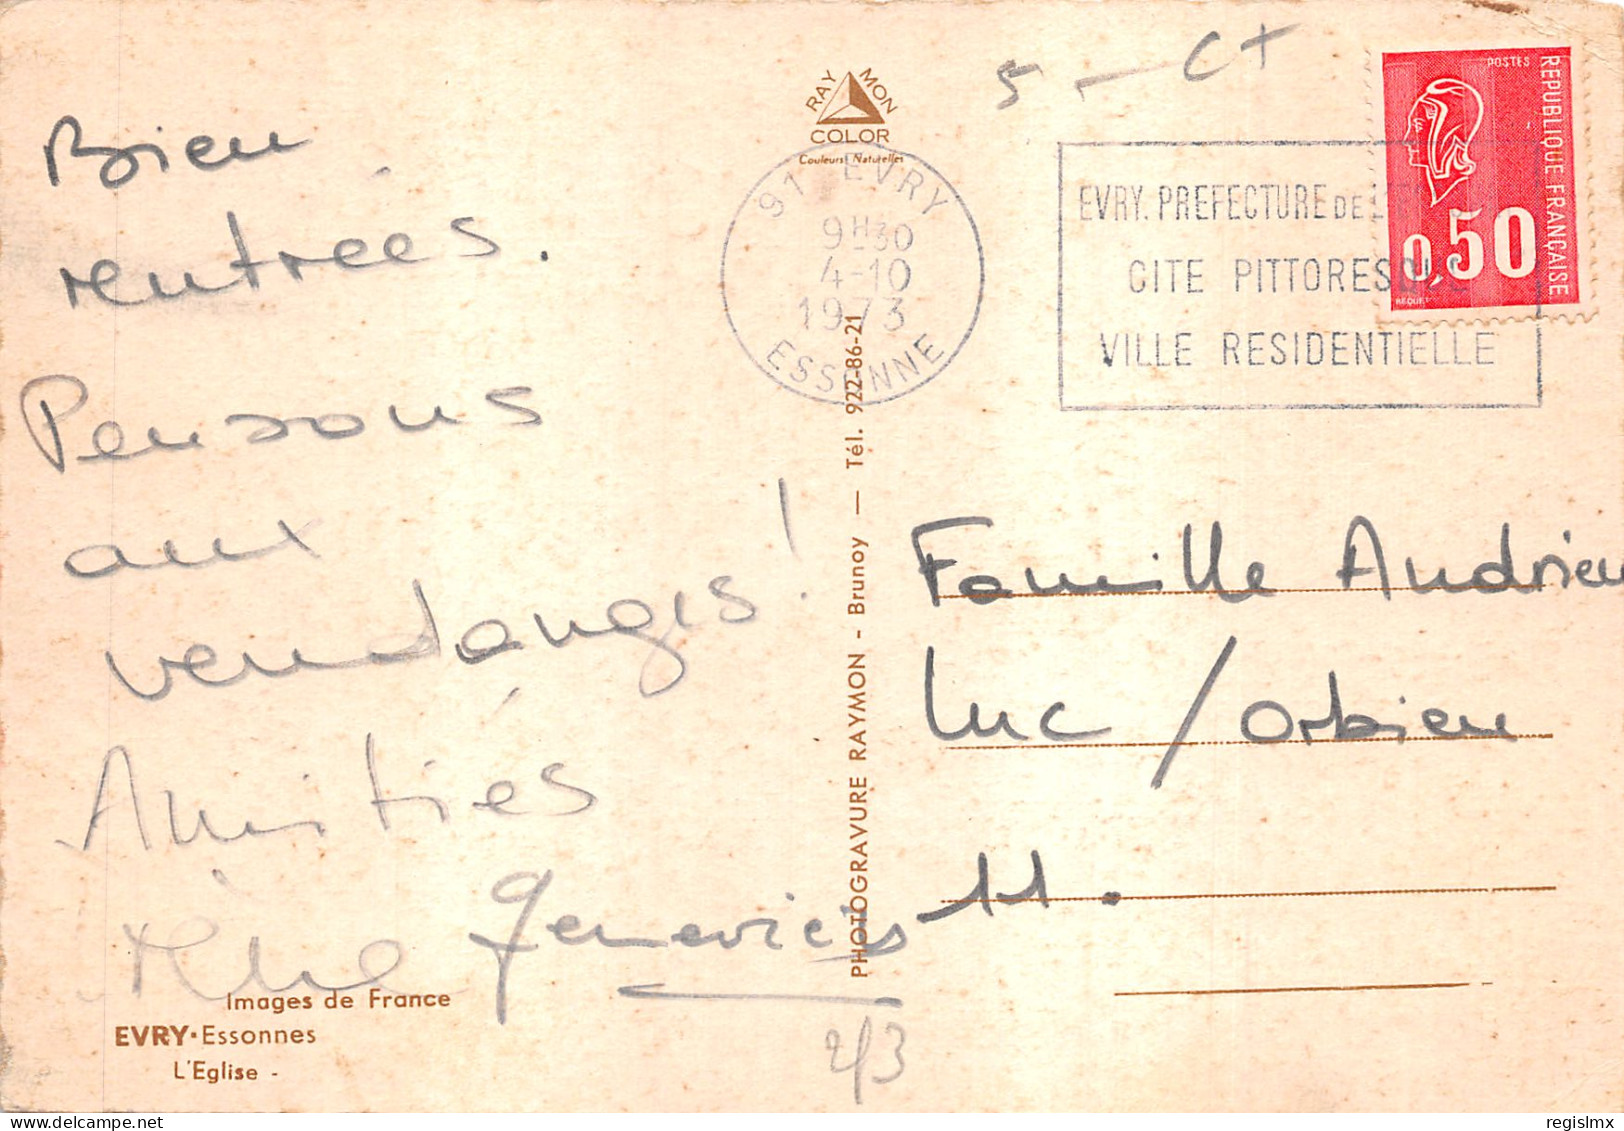 Bien
rentrées.
Pensons
aux
vendanges !
Amitiés
Geneviève
Images de France
EVRY•Essonnes
L'Eglise -
RAYMON
COLOR
Couleurs Naturelles
PHOTOGRAVURE RAYMON - Brunoy — Tél. 922-86-21
91 EVRY
9H30
4-10
1973
ESSONNE
5 - Ct
EVRY. PREFECTURE DE L'
CITE PITTORESQUE
VILLE RESIDENTIELLE
POSTES
REPUBLIQUE FRANÇAISE
0,50
BEQUET
Famille Andrieu
Luc / Orbieu
11.
2/3
regislmx